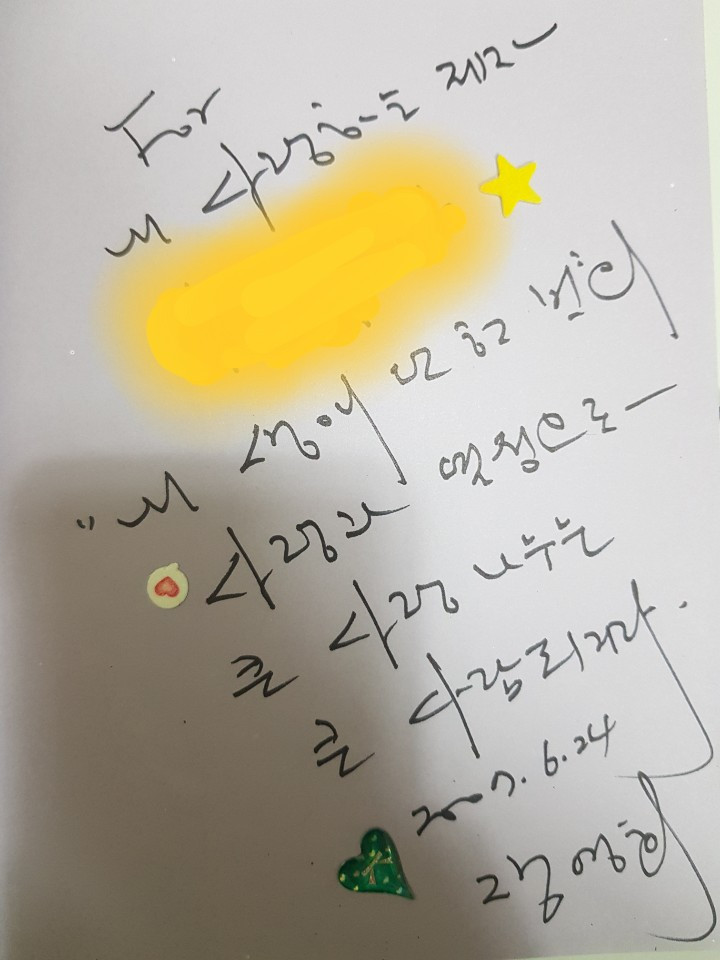 For
내 사랑하는 제자
"내 생애 단 한 번의
사랑과 열정으로
큰 사랑 나누는
큰 사람 되거라.
2007. 6. 24
장영희